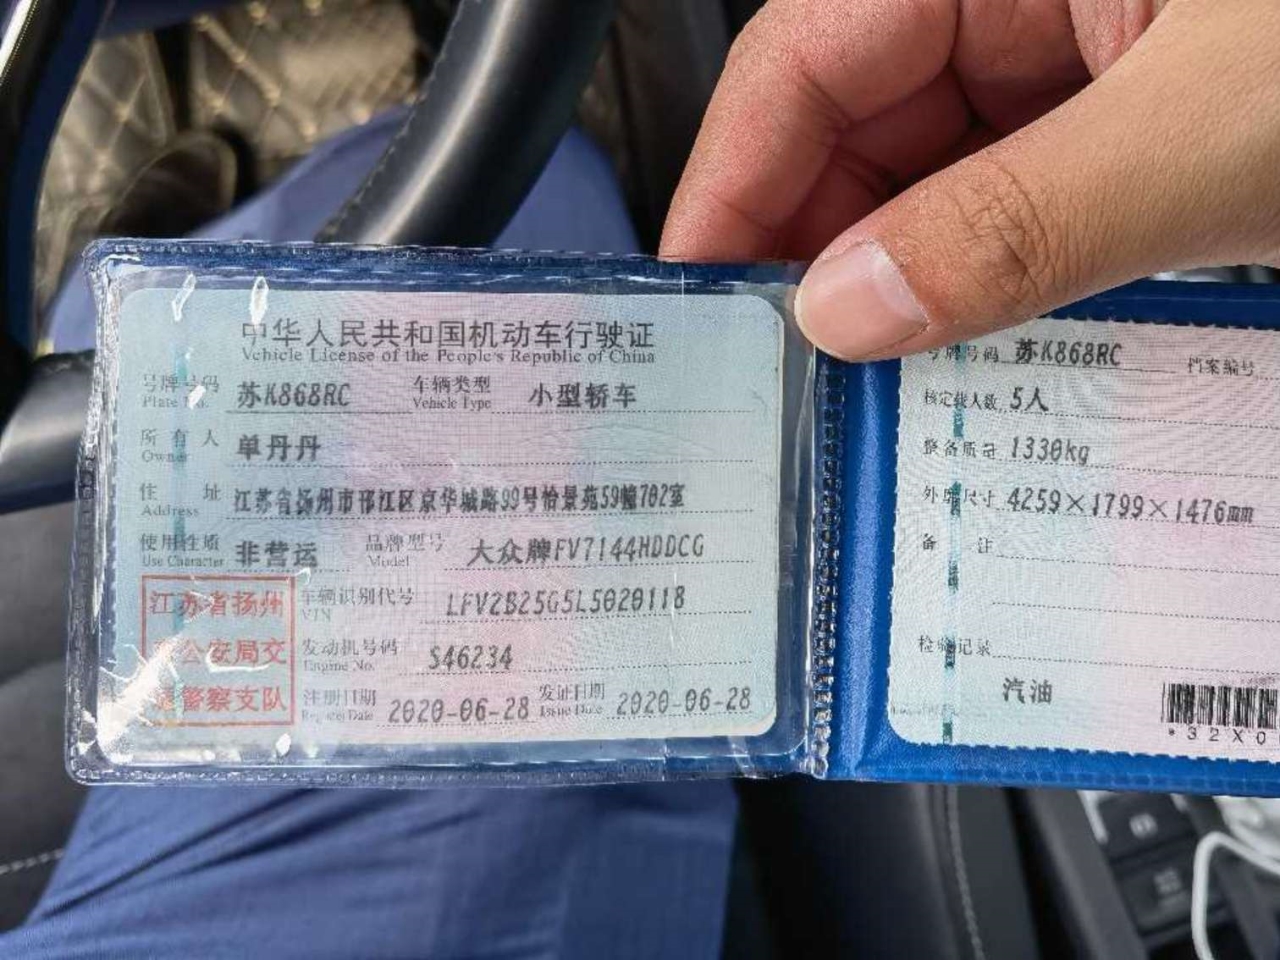 中华人民共和国机动车行驶证
Vehicle License of the People's Republic of China
号牌号码 苏K868RC 车辆类型 小型轿车
Plate No. Vehicle Type
所有人 单丹丹
Owner
住址 江苏省扬州市邗江区京华城路99号怡景苑59幢702室
Address
使用性质 非营运 品牌型号 大众牌FV7144HDDCG
Use Character Model
江苏省扬州
公安局交
警察支队
车辆识别代号 LFV2B25G5L5020118
VIN
发动机号码 S46234
Engine No.
注册日期 2020-06-28 发证日期 2020-06-28
Register Date Issue Date
号牌号码 苏K868RC 档案编号
核定载人数 5人
整备质量 1330kg
外廓尺寸 4259×1799×1476mm
备注
检验记录
汽油
*32X0